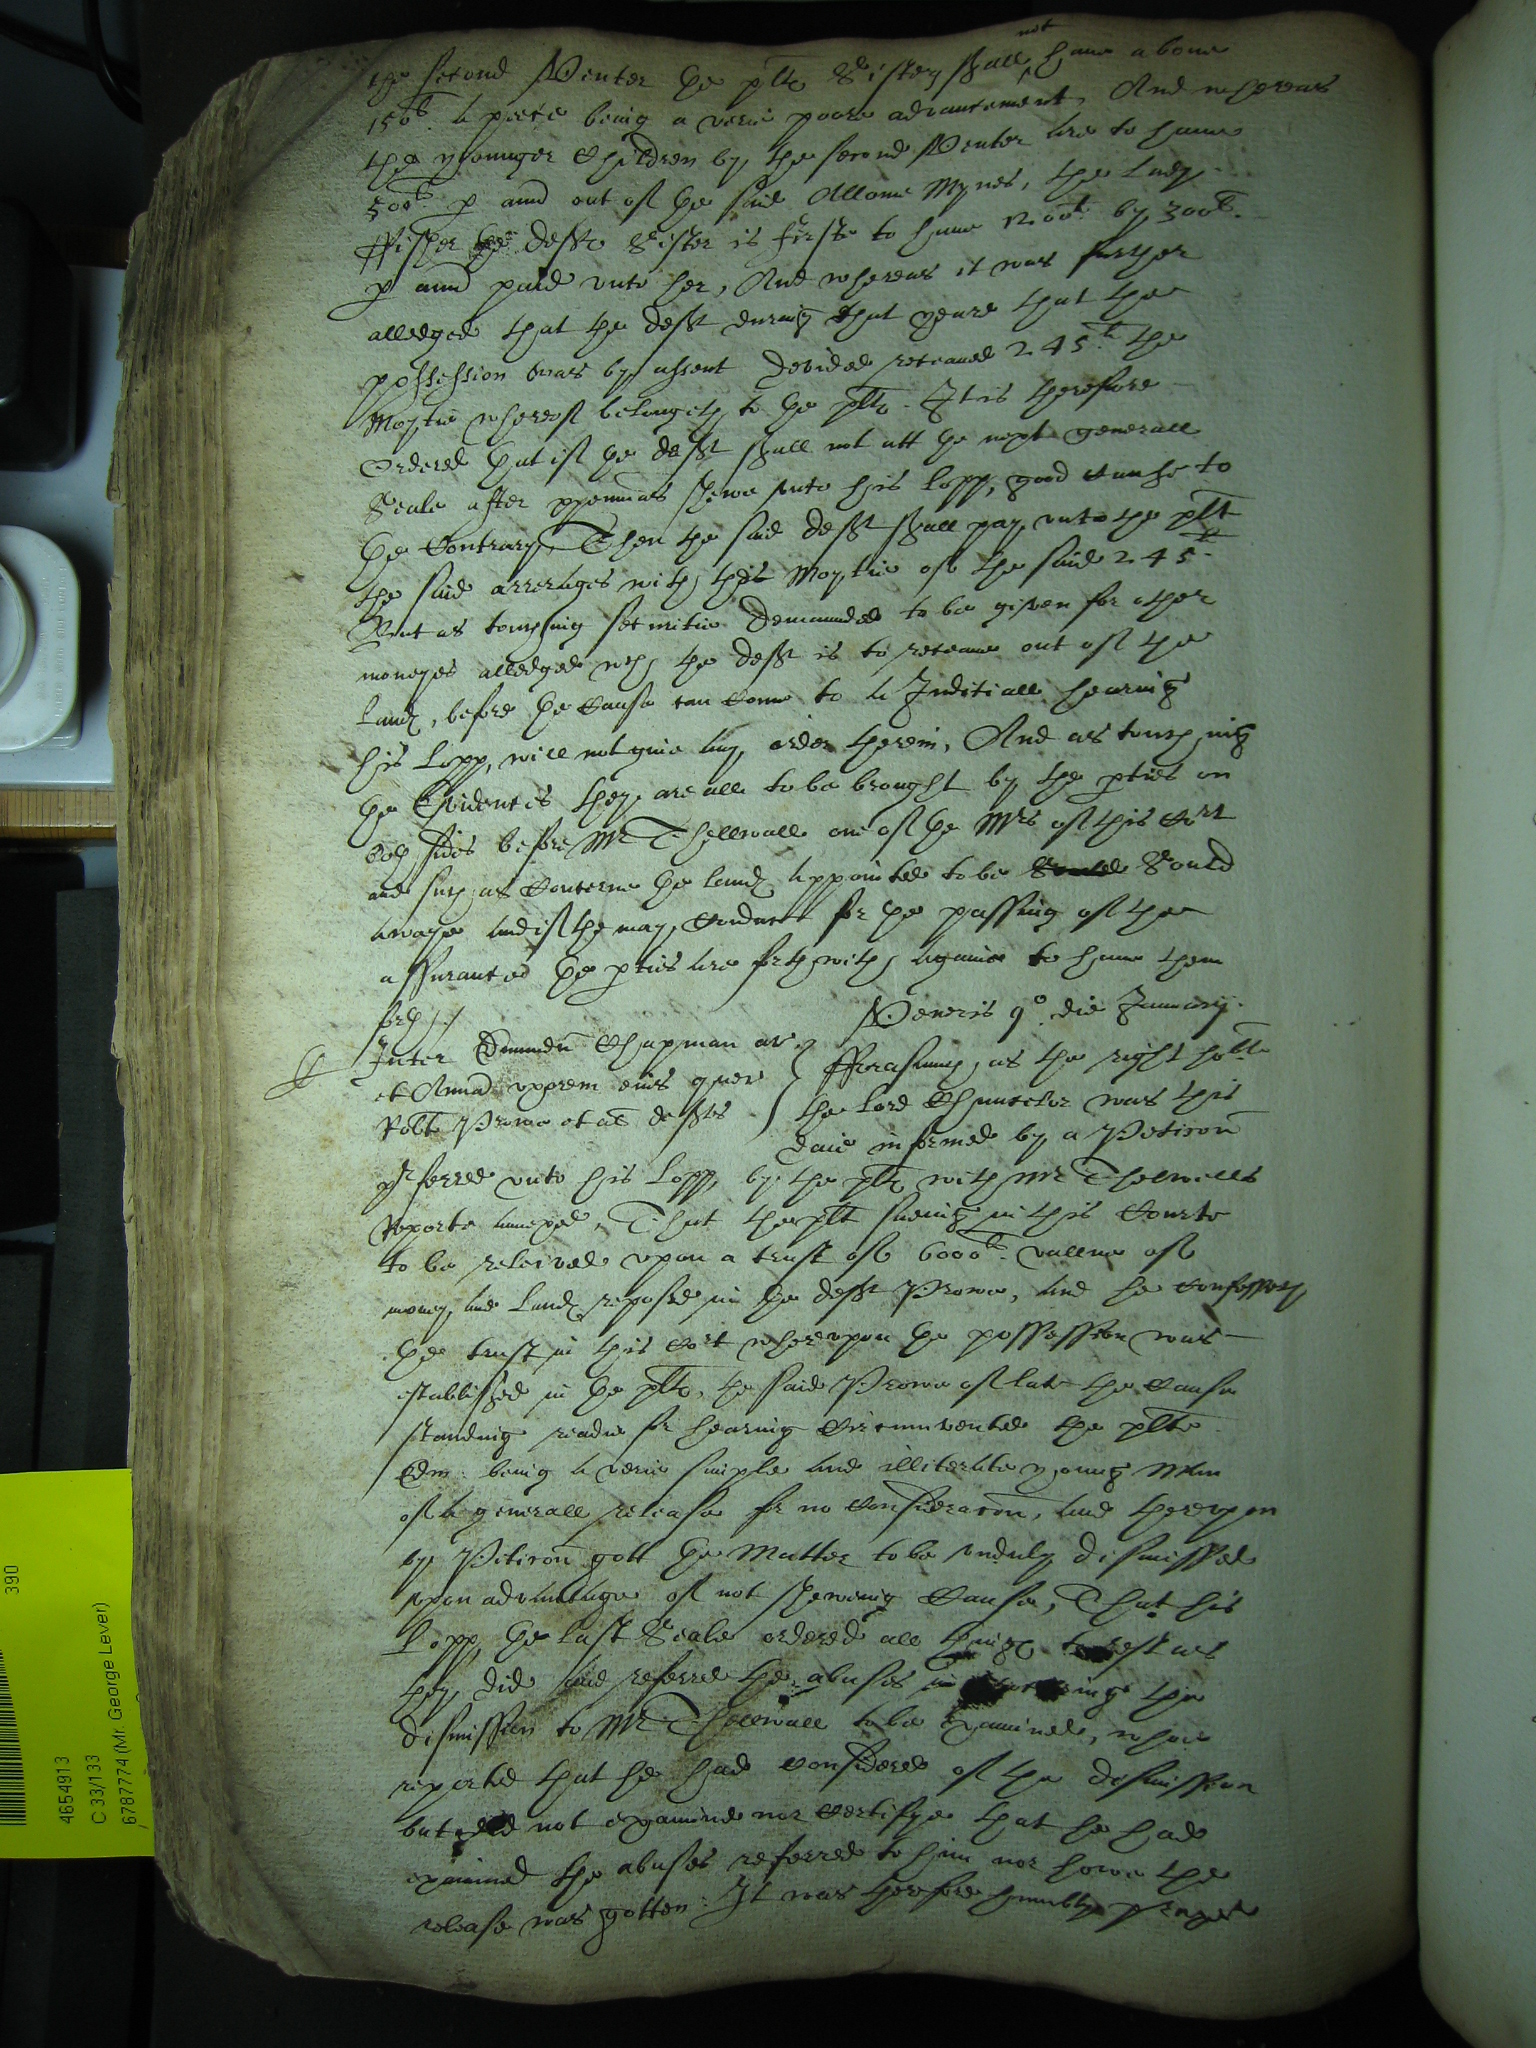 the second Venter the plts Sisters shall not haue aboue
150li. a peece being a verie poore advancement, And whereas
the younger Children by the second Venter are to haue
500li p ann out of the said Allome Mynes, the Lady
ffisher the deftes Sister is firste to haue by 300li.
p ann paid vnto her, And whereas it was further
alledged that the deft during that yeare that the
possession was by assent devided receaued 245li. the
Moytie whereof belongeth to the plts. It is therefore
Ordered that if the deft shall not att the next generall
Seale after xpenmas shewe vnto his Lopp, good Cause to
the Contrary, Then the said deft shall pay vnto the plt
the said arrerages with this Moytie of the said 245li.
But as touching securitie demaunded to be given for other
moneyes alledged wch the deft is to receaue out of the
Land, before the Cause can Come to a Judiciall hearing
his Lopp, will not giue any order therein, And as touching
the Evidences they are all to be brought by the pties on
both sides before Mr Thellwall one of the Mrs of this Cort
and such as Concerne the land appointed to be Sould
awaye and if the may Conduce for the passing of the
assurances the pties are forthwith againe to haue them
forth ./
Veneris 9o. die January.
Inter Edmundu Chapman ar
et Anna vxorem eius quer
Robt Prowe et al deftes
fforasmuch as the right hoble
the Lord Chauncelor was this
daie informed by a Peticon
pferred vnto his Lopp, by the plts with Mr Thelwalls
Reporte annexed, That the plt sueing in this Courte
to be releived vpon a trust of 6000li. vallue of
money and Land reposed in the deft Prowe, and he Confesseth
the trust in this Cort wherevpon the possession was
established in the plts, the said Prowe of late the Cause
standing readie for hearing Circumvented the plte
Edm: being a verie simple and illiterate young Man
of a generall release for no Consideracon, and therevpon
by Peticon gott the Matter to be vnduly dismissed
vpon advantage of not shewing Cause, That his
Lopp, the last Seale ordered all things to rest as
they did and referred the abuses in the
dismission to Mr Thellwall to be examined, whoe
reported that he had Considered of the dismission
but did not examine nor Certifye that he had
examined the abuses referred to him nor howe the
release was gotten: It was therefore humbly prayed
390
4654913
C 33/133
6787774 (Mr. George Lever)